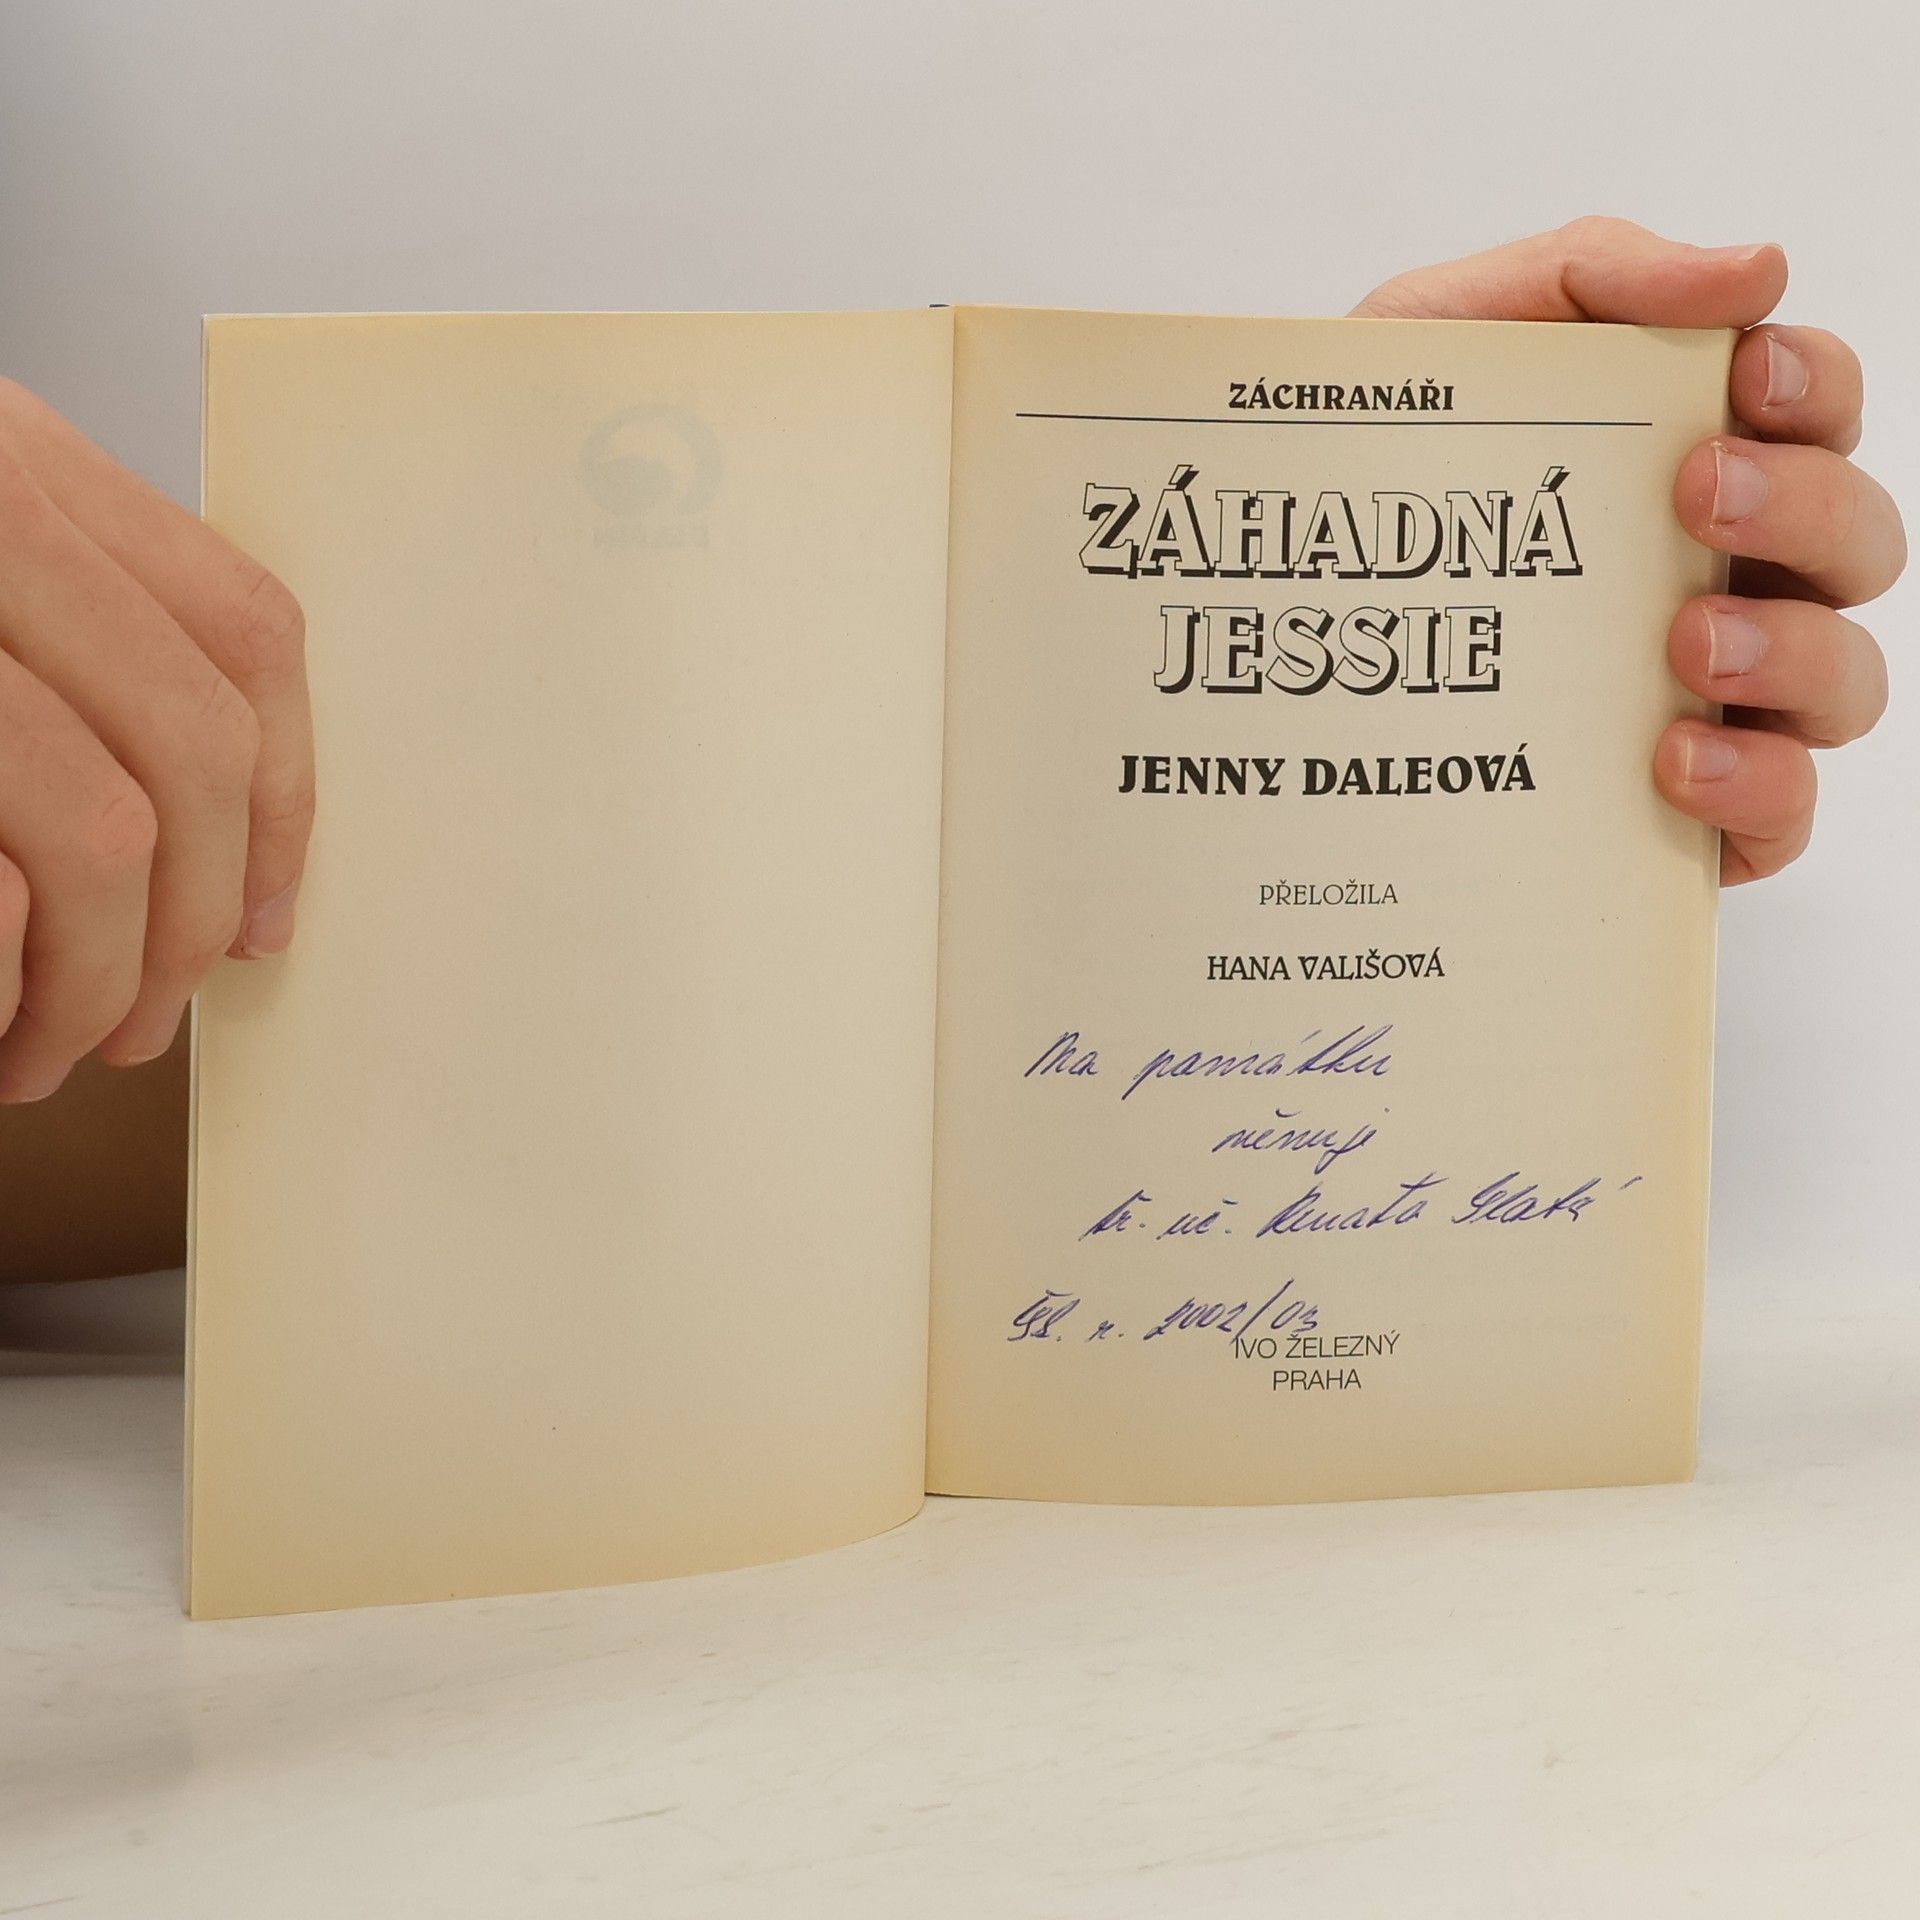 ZÁCHRANÁŘI
ZÁHADNÁ
JESSIE
JENNY DALEOVÁ
PŘELOŽILA
HANA VALIŠOVÁ
Na památku
věnuje
tř. uč. Renata Slatá
Šk. r. 2002/03
IVO ŽELEZNÝ
PRAHA